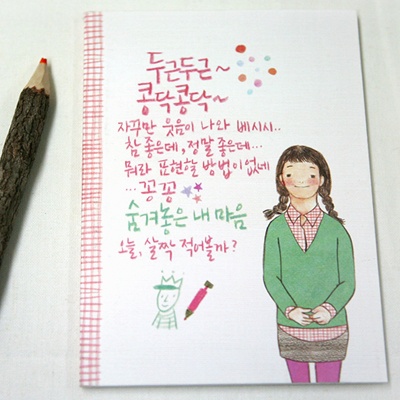 두근두근~
콩닥콩닥~
자꾸만 웃음이 나와 베시시..
참 좋은데, 정말 좋은데...
뭐라 표현할 방법이 없네
... 꽁꽁
숨겨놓은 내 마음
오늘, 살짝 적어볼까?